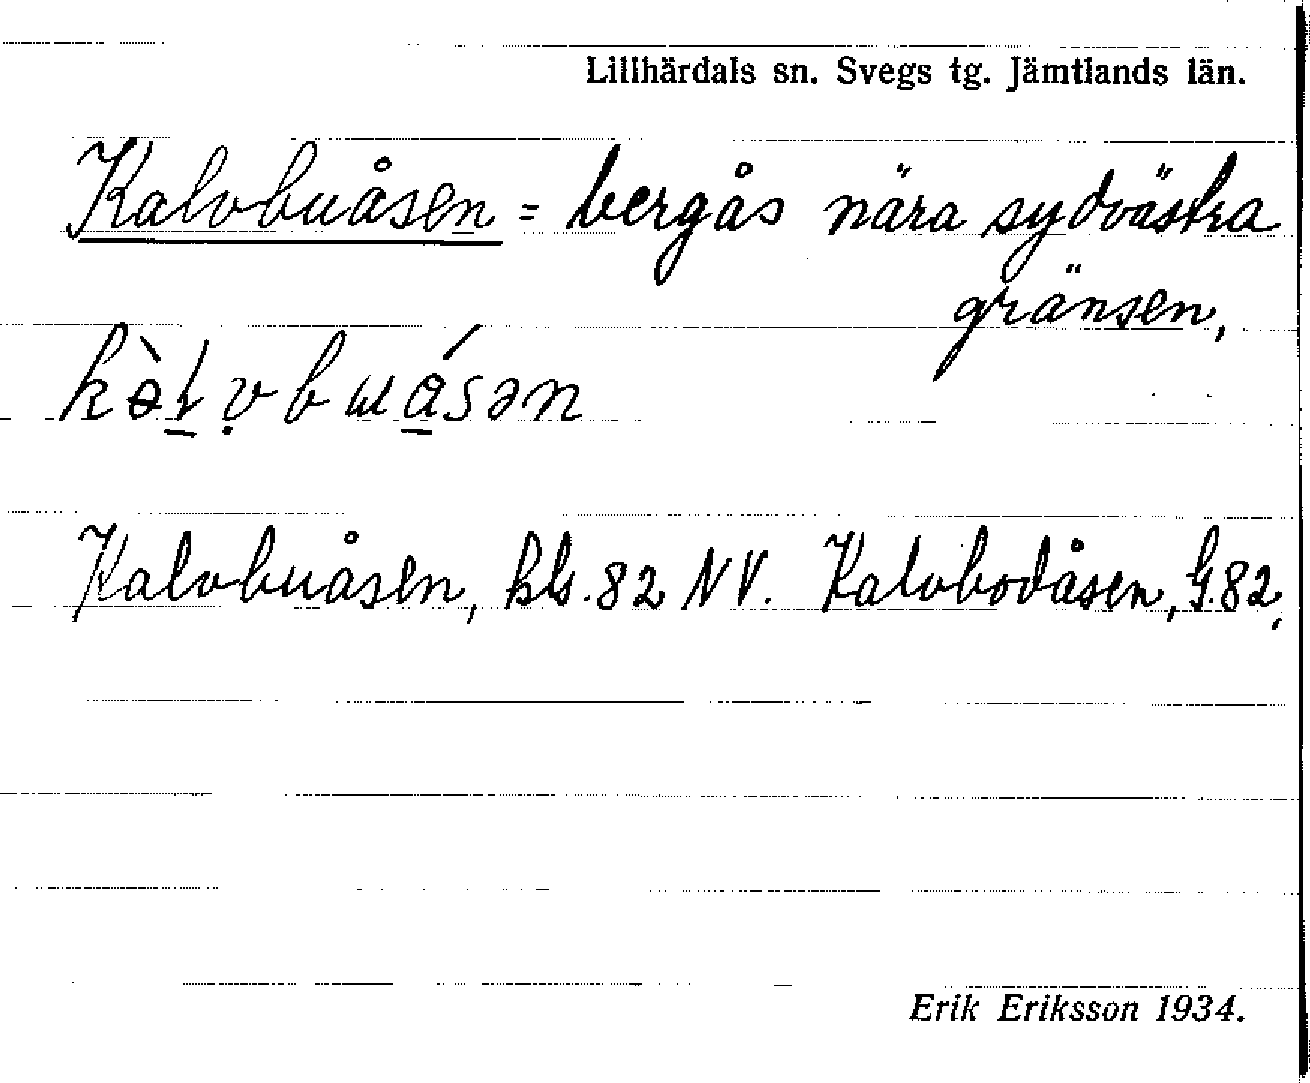 Lillhärdals sn. Svegs tg. Jämtlands län.
Kalvbuåsen = bergås nära sydvästra
gränsen,
Kalvbuåsen, kls. 82 NV. Kalvbodåsen, G. 82,
Erik Eriksson 1934.